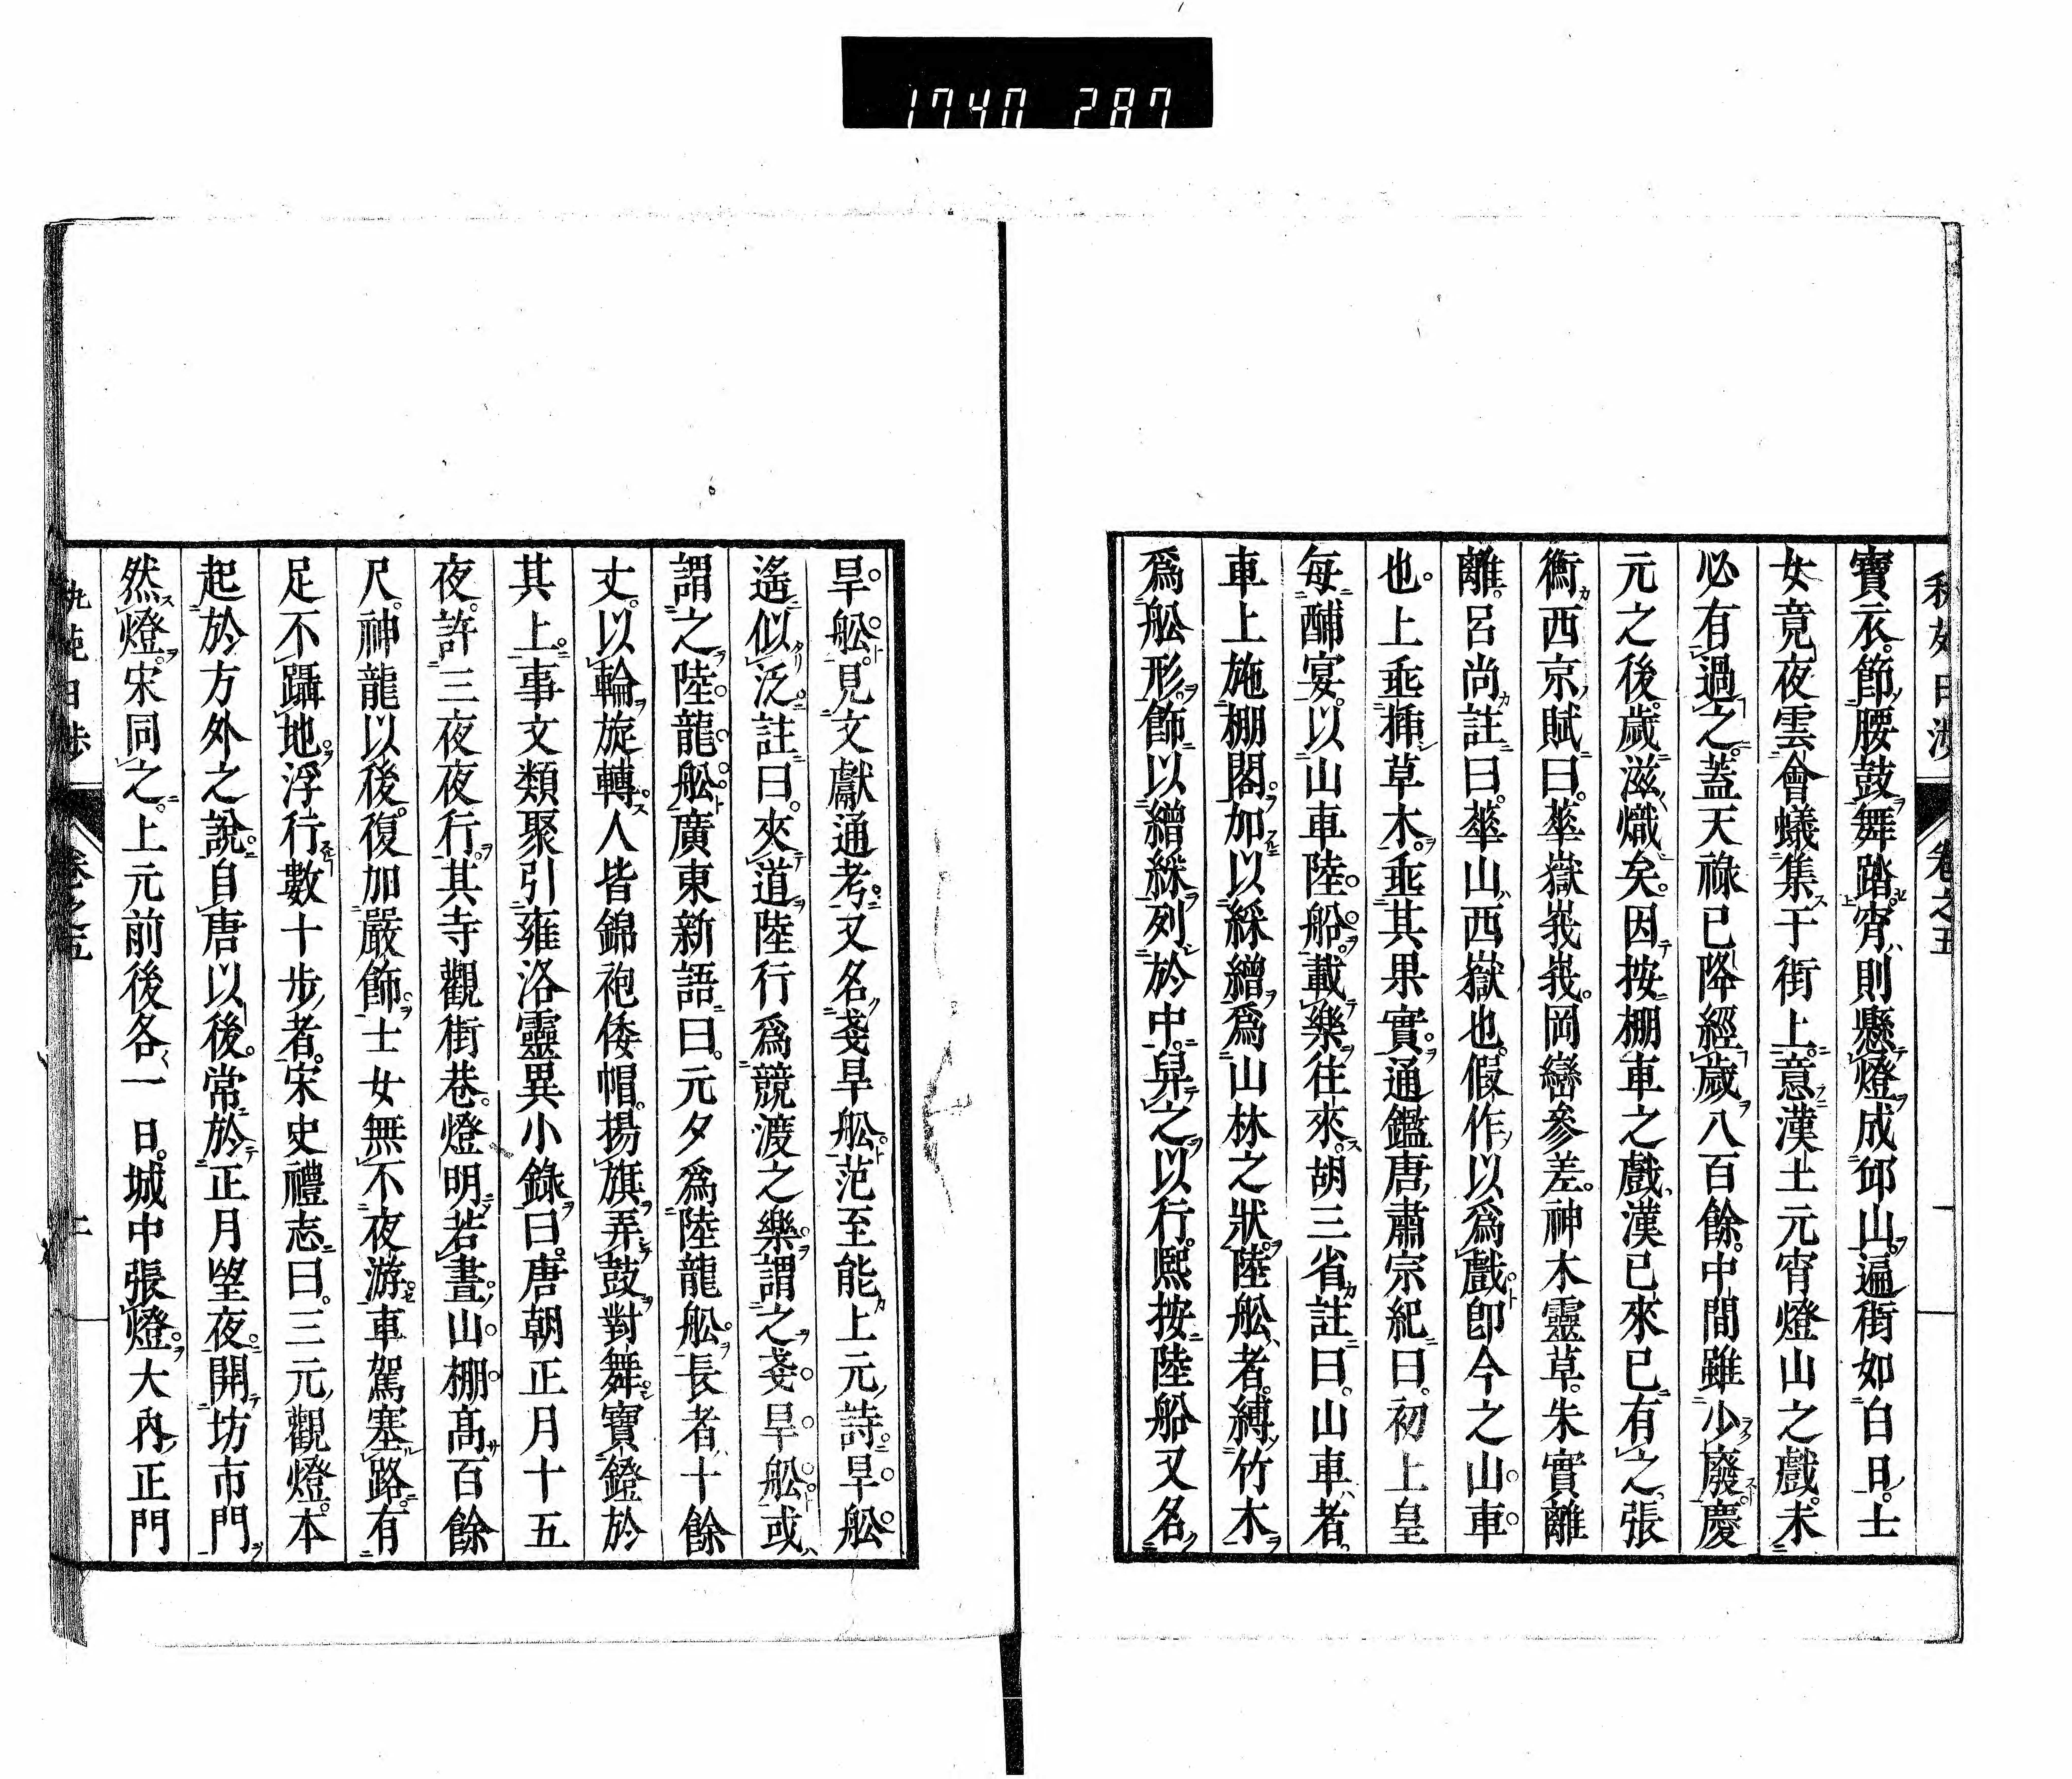 1740 287
寶衣。節腰鼓舞踏。宵則懸燈成邱山。遍街如白日。士
女竟夜雲會蟻集于街上。意漢土元宵燈山之戲。未
必有過之。蓋天祿已降經歲八百餘。中間雖少廢慶
元之後。歲滋熾矣。因按棚車之戲、漢已來已有之。張
衡西京賦曰。華嶽峩峩。岡巒參差。神木靈草。朱實離
離。呂尚註曰。華山西嶽也。假作以爲戲卽今之山車
也。上乖揷草木。乖其果實。通鑑唐肅宗紀曰。初上皇
每酺宴。以山車陸船。載樂往來。胡三省註曰。山車者。
車上施棚閣。加以綵繒爲山林之狀。陸舩者。縛竹木
爲舩形。飾以繒綵列於中。舁之以行。熙按陸船又名
旱舩。見文獻通考。又名𢧵旱舩。范至能上元詩。旱舩
遙似泛。註曰。夾道陸行爲競渡之樂。謂之旱舩。或
謂之陸龍舩。廣東新語曰。元夕爲陸龍舩。長者十餘
丈。以輪旋轉。人皆錦袍倭帽。揚旗弄鼓。對舞寶鐙於
其上。事文類聚引雍洛靈異小錄曰。唐朝正月十五
夜。許三夜夜行。其寺觀街巷。燈明若晝。山棚高百餘
尺。神龍以後。復加嚴飾。士女無不夜游。車駕塞路。有
足不躡地。浮行數十步者。宋史禮志曰。三元觀燈。本
起於方外之說。自唐以後。常於正月望夜。開坊市門
然燈。宋同之。上元前後各一日。城中張燈。大內正門
卷之五